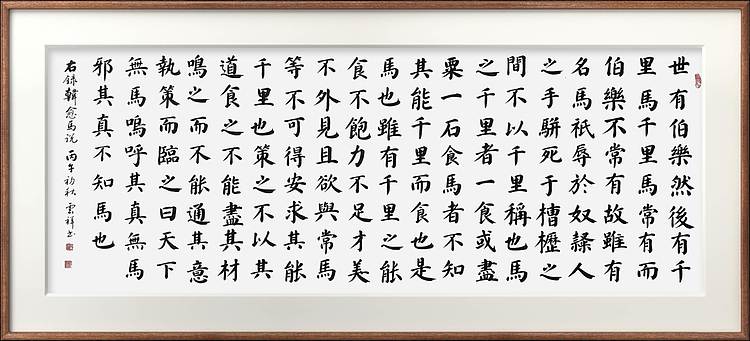 世有伯樂然後有千
里馬千里馬常有而
伯樂不常有故雖有
名馬祇辱於奴隸人
之手駢死于槽櫪之
間不以千里稱也馬
之千里者一食或盡
粟一石食馬者不知
其能千里而食也是
馬也雖有千里之能
食不飽力不足才美
不外見且欲與常馬
等不可得安求其能
千里也策之不以其
道食之不能盡其材
鳴之而不能通其意
執策而臨之曰天下
無馬鳴呼其真無馬
邪其真不知馬也
右録韓愈馬说 丙午初秋 雲祥书